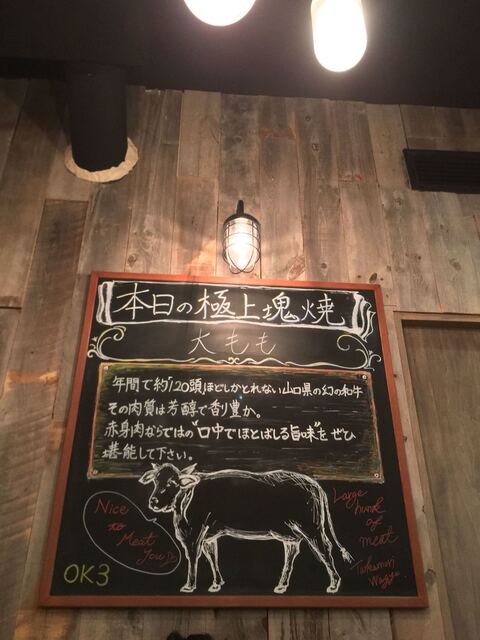 本日の極上塊焼
大もも
年間で約120頭ほどしかとれない山口県の幻の和牛
その肉質は芳醇で香り豊か。
赤身肉ならではの"口中でほとばしる旨味"を ぜひ
堪能して下さい。
Nice
to
Meat
You
Large
hunk
of
meat
OK3